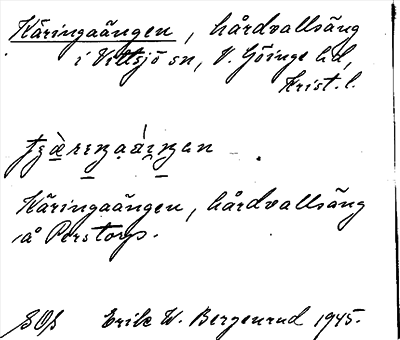 Käringaängen, hårdvallsäng
i Vittsjö sn, V. Göinge hd,
Krist. l.
Käringaängen, hårdvallsäng
å Perstorp.
Erik W. Bergenrud 1945.